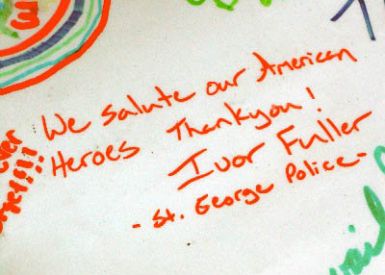 We salute our American
Heroes Thankyou!
Ivor Fuller
- St. George Police -